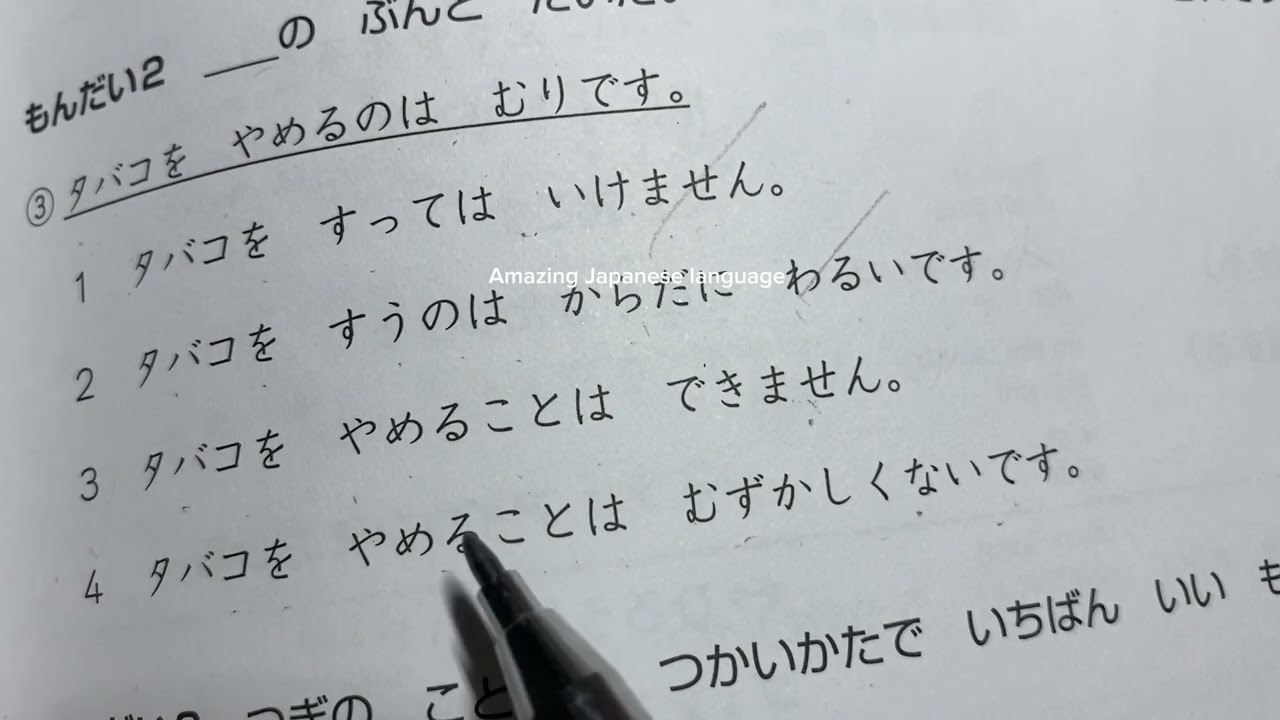 もんだい2 ＿＿の ぶんと
③タバコを やめるのは むりです。
1 タバコを すっては いけません。
2 タバコを すうのは からだに わるいです。
Amazing Japanese language
3 タバコを やめることは できません。
4 タバコを やめることは むずかしくないです。
つぎの こと つかいかたで いちばん いい